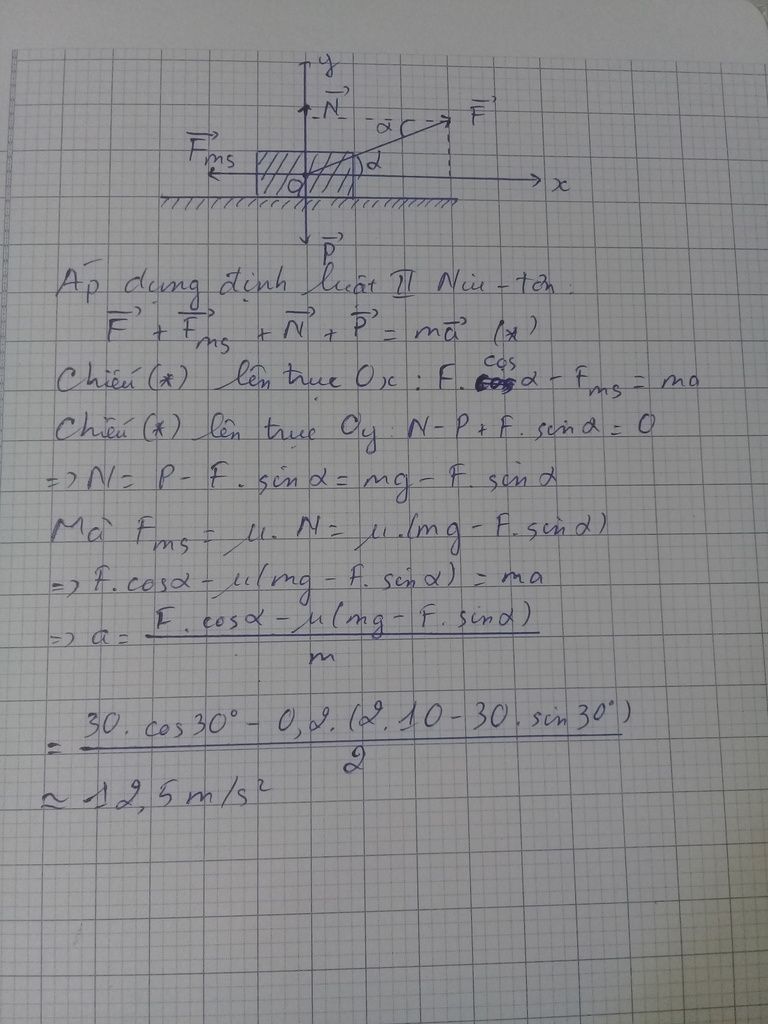 y
N⃗
α F⃗
F⃗ms
α
O x
P⃗
Áp dụng định luật II Niu-tơn:
F⃗ + F⃗ms + N⃗ + P⃗ = ma⃗ (*)
Chiếu (*) lên trục Ox: F. cos α - Fms = ma
Chiếu (*) lên trục Oy: N - P + F. sin α = 0
=> N = P - F. sin α = mg - F. sin α
Mà Fms = μ. N = μ.(mg - F. sin α)
=> F. cosα - μ(mg - F. sin α) = ma
=> a = F. cosα - μ(mg - F. sinα)
m
= 30. cos30° - 0,2. (2.10 - 30. sin30°)
2
≈ 12,5 m/s²